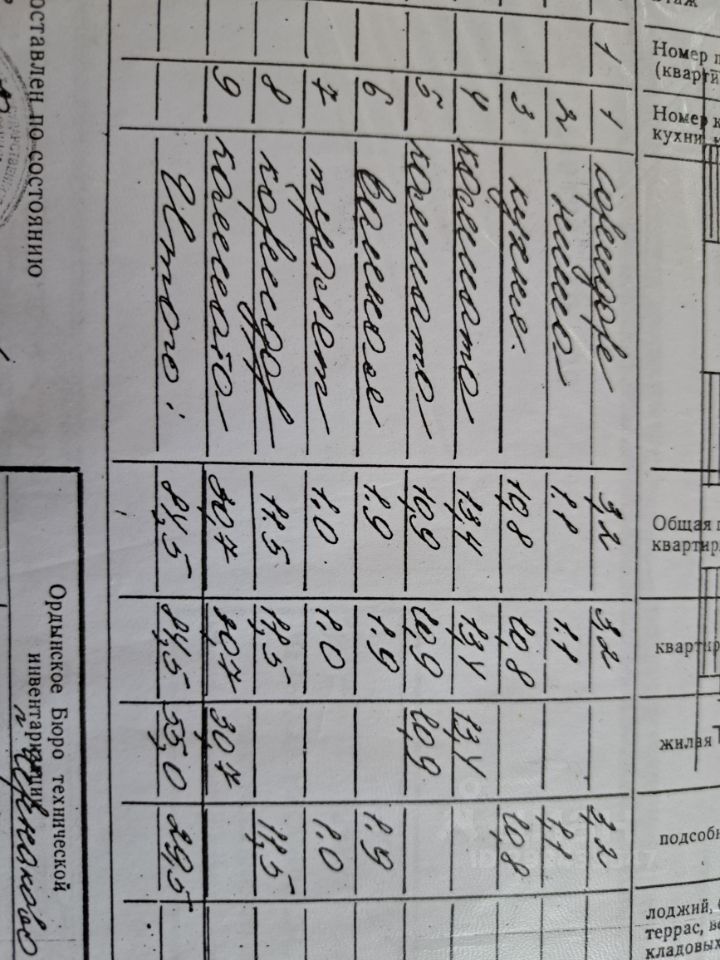 этаж
Номер п
(кварти
Номер к
кухни, к
Общая п
квартир
квартир
жилая
подсобн
лоджий,
террас, ве
кладовых
1 1 коридор 3,2 3,2 3,2
2 ниша 1.1 1.1 1,1
3 кухня. 10,8 10,8 10,8
4 комната 13,4 13,4 13,4
5 комната 10,9 10,9 10,9
6 ванная 1.9 1.9 1.9
7 туалет 1.0 1.0 1.0
8 коридор 11.5 11,5 11,5
9 комната 30,7 30,7 30,7
Итого: 84,5 84,5 55,0 29,5
оставлен по состоянию
Ордынское Бюро технической
инвентаризации